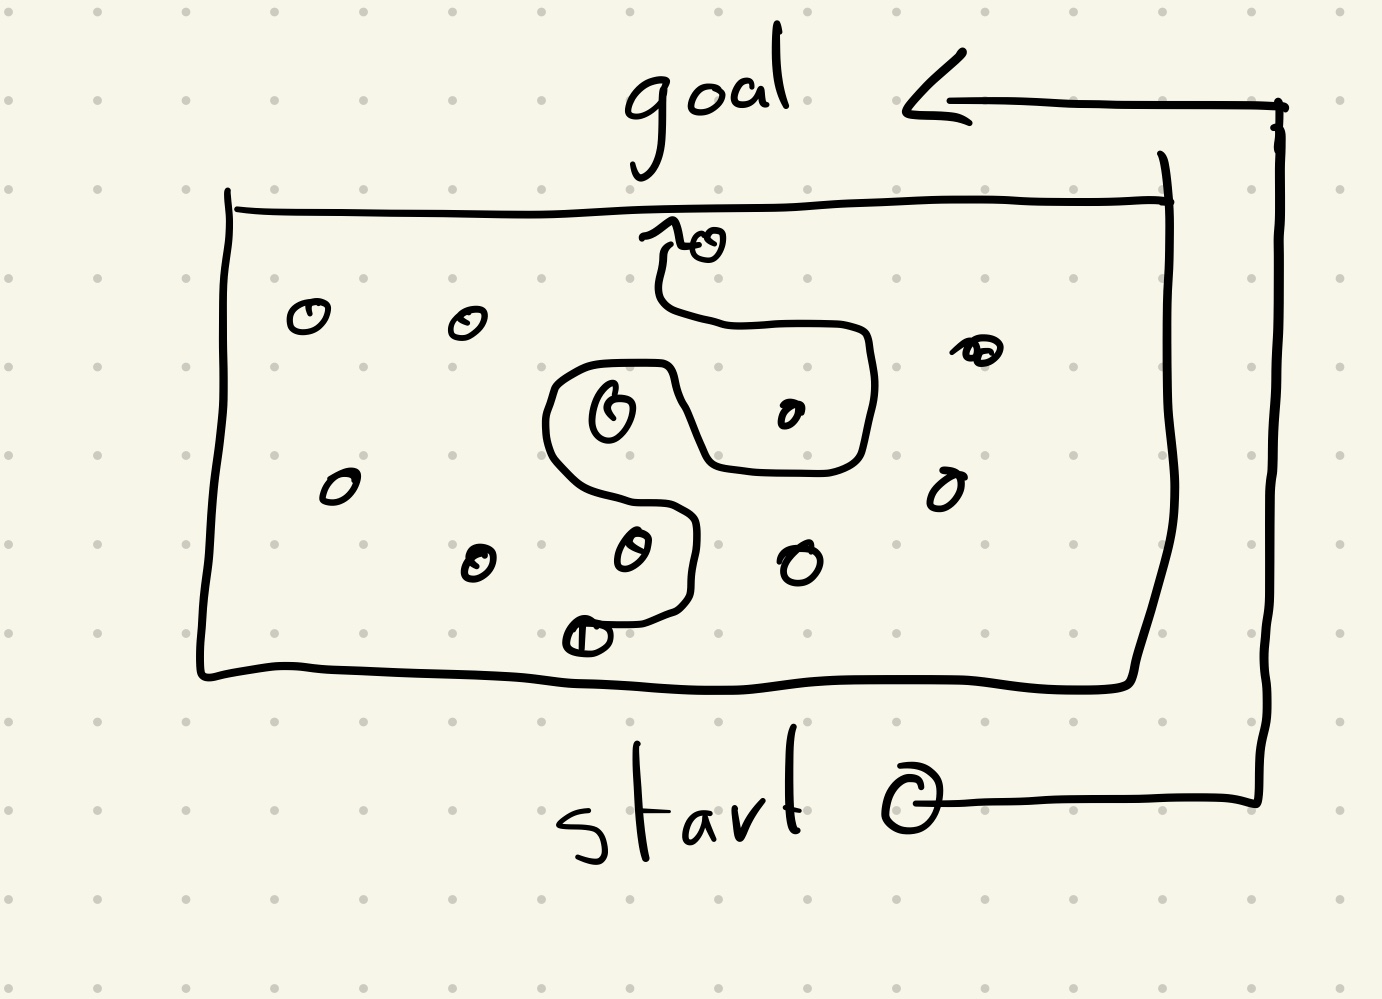 goal
start